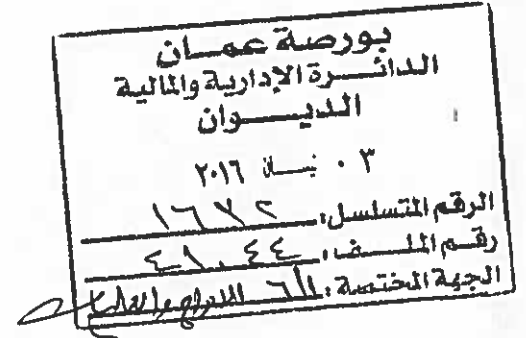 بورصة عمان
الدائرة الإدارية والمالية
الديوان
٠٣ نيسان ٢٠١٦
الرقم المتسلسل: ١٦٧٢
رقم الملف: ٤١٠٤٤
الجهة المختصة: الإدراج